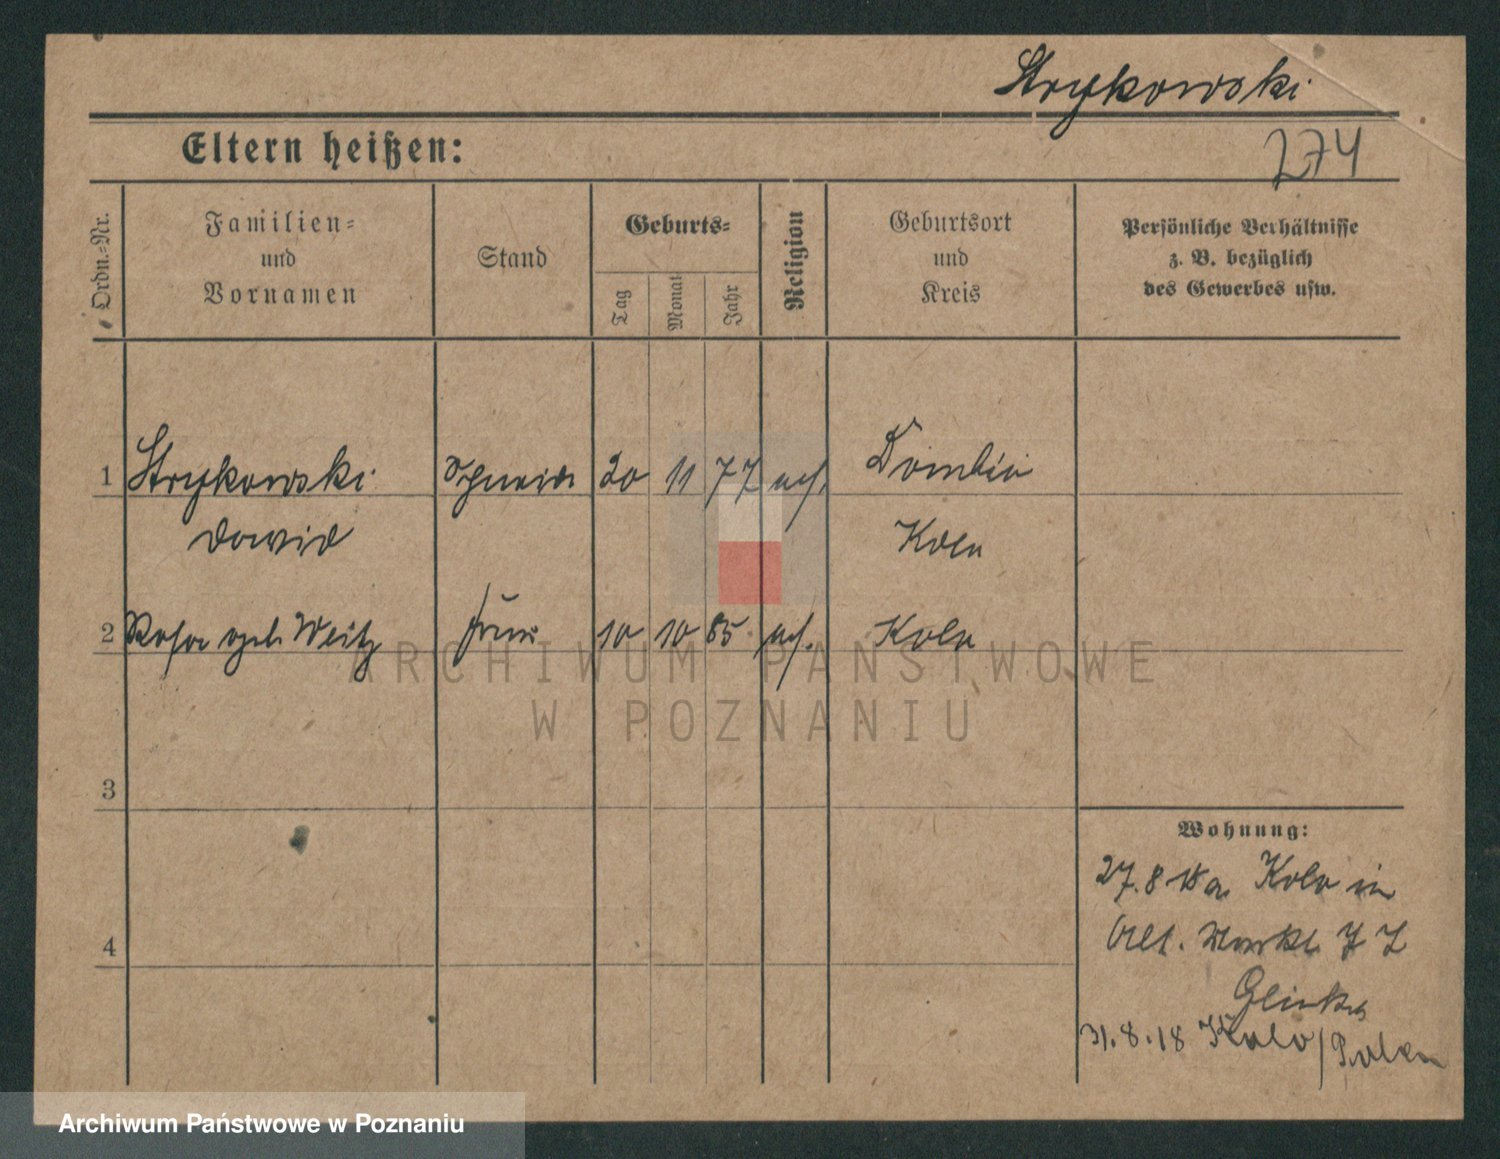 Strykowski
Eltern heißen:
274
Ordn.=Nr.
Familien=
und
Vornamen
Stand
Geburts=
Tag
Monat
Jahr
Religion
Geburtsort
und
Kreis
Persönliche Verhältnisse
z. B. bezüglich
des Gewerbes usw.
1 Strykowski Schneider 20 11 77 Dombia
Dawid Kolo
2 Rosa geb. Weitz Frau 10 10 85 Kolo
ARCHIWUM PAŃSTWOWE
W POZNANIU
3
Wohnung:
27.8.18 a. Kolo in
4
Alt. Markt 77
Glinka
31.8.18 Kolo/Polen
Archiwum Państwowe w Poznaniu